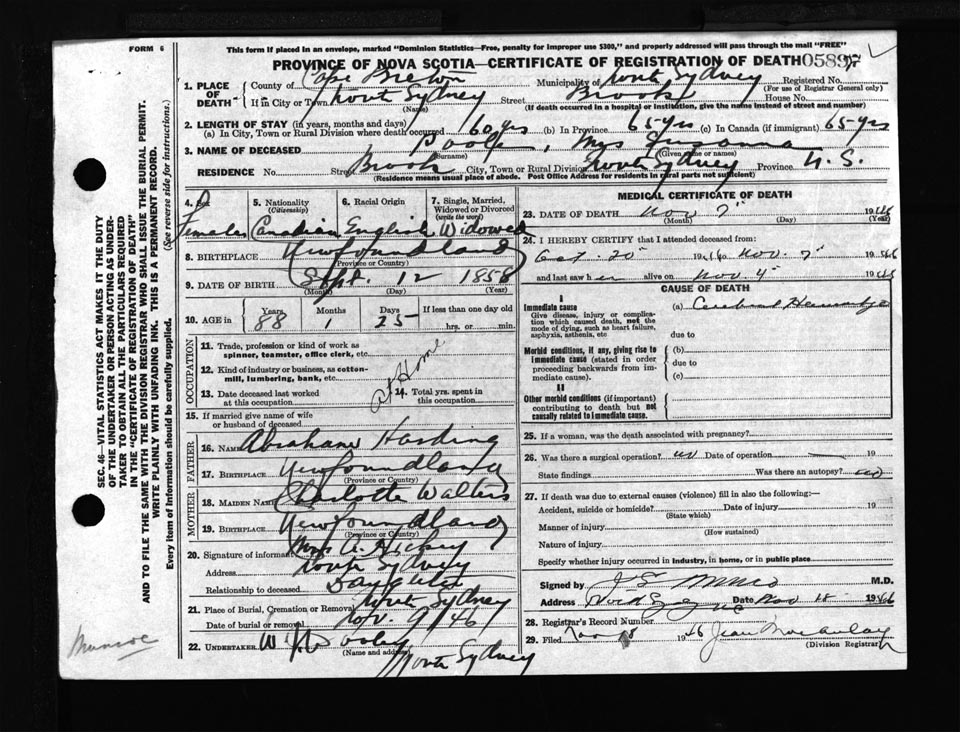 FORM 6
This form if placed in an envelope, marked "Dominion Statistics—Free, penalty for improper use $300," and properly addressed will pass through the mail "FREE"
PROVINCE OF NOVA SCOTIA—CERTIFICATE OF REGISTRATION OF DEATH
1. PLACE OF DEATH County of Cape Breton Municipality of North Sydney Registered No.
(For use of Registrar General only)
If in City or Town North Sydney Street Brook House No.
(Name) (If death occurred in a hospital or institution, give the name instead of street and number)
2. LENGTH OF STAY (in years, months and days)
(a) In City, Town or Rural Division where death occurred 60 yrs (b) In Province 65 yrs (c) In Canada (if immigrant) 65 yrs
3. NAME OF DECEASED Poole, Mrs Susanna
(Surname) (Given name or names)
RESIDENCE No. Street Brook City, Town or Rural Division North Sydney Province N.S.
(Residence means usual place of abode. Post Office Address for residents in rural parts not sufficient)
4. Sex 5. Nationality (Citizenship) 6. Racial Origin 7. Single, Married, Widowed or Divorced (write the word)
Female Canadian English Widowed
8. BIRTHPLACE Newfoundland
(Province or Country)
9. DATE OF BIRTH Sept. 12 1858
(Month) (Day) (Year)
10. AGE in Years Months Days If less than one day old
88 1 25 hrs. or min.
OCCUPATION
11. Trade, profession or kind of work as spinner, teamster, office clerk, etc.
12. Kind of industry or business, as cotton-mill, lumbering, bank, etc.
At Home
13. Date deceased last worked at this occupation 14. Total yrs. spent in this occupation
15. If married give name of wife or husband of deceased
FATHER
16. NAME Abraham Harding
17. BIRTHPLACE Newfoundland
(Province or Country)
MOTHER
18. MAIDEN NAME Charlotte Walters
19. BIRTHPLACE Newfoundland
(Province or Country)
20. Signature of informant Mrs A. Hickey
Address North Sydney
Relationship to deceased Daughter
21. Place of Burial, Cremation or Removal North Sydney
Date of burial or removal Nov. 9/46
22. UNDERTAKER W Dooley
(Name and address)
North Sydney
MEDICAL CERTIFICATE OF DEATH
23. DATE OF DEATH Nov 7" 1946
(Month) (Day)
24. I HEREBY CERTIFY that I attended deceased from:
Oct. 20" 1946 to Nov. 7" 1946
and last saw her alive on Nov. 4" 1946
CAUSE OF DEATH
I
Immediate cause (a) Cerebral Hemorrhage
Give disease, injury or complication which caused death, not the mode of dying, such as heart failure, asphyxia, asthenia, etc due to
Morbid conditions, if any, giving rise to immediate cause (stated in order proceeding backwards from immediate cause). (b) due to (c)
II
Other morbid conditions (if important) contributing to death but not causally related to immediate cause.
25. If a woman, was the death associated with pregnancy?
26. Was there a surgical operation? no Date of operation — 19
State findings Was there an autopsy? no
27. If death was due to external causes (violence) fill in also the following:
Accident, suicide or homicide? Date of injury 19
(State which)
Manner of injury
(How sustained)
Nature of injury
Specify whether injury occurred in industry, in home, or in public place
Signed by M.D.
Address Date Nov 18 1946
28. Registrar's Record Number
29. Filed Nov 18 1946 Jean MacAulay
(Division Registrar)
SEC. 46—VITAL STATISTICS ACT MAKES IT THE DUTY
OF THE UNDERTAKER OR PERSON ACTING AS UNDER-
TAKER TO OBTAIN ALL THE PARTICULARS REQUIRED
IN THE "CERTIFICATE OF REGISTRATION OF DEATH"
AND TO FILE THE SAME WITH THE DIVISION REGISTRAR WHO SHALL ISSUE THE BURIAL PERMIT.
WRITE PLAINLY WITH UNFADING INK. THIS IS A PERMANENT RECORD.
Every item of information should be carefully supplied. (See reverse side for instructions.)
Munroe